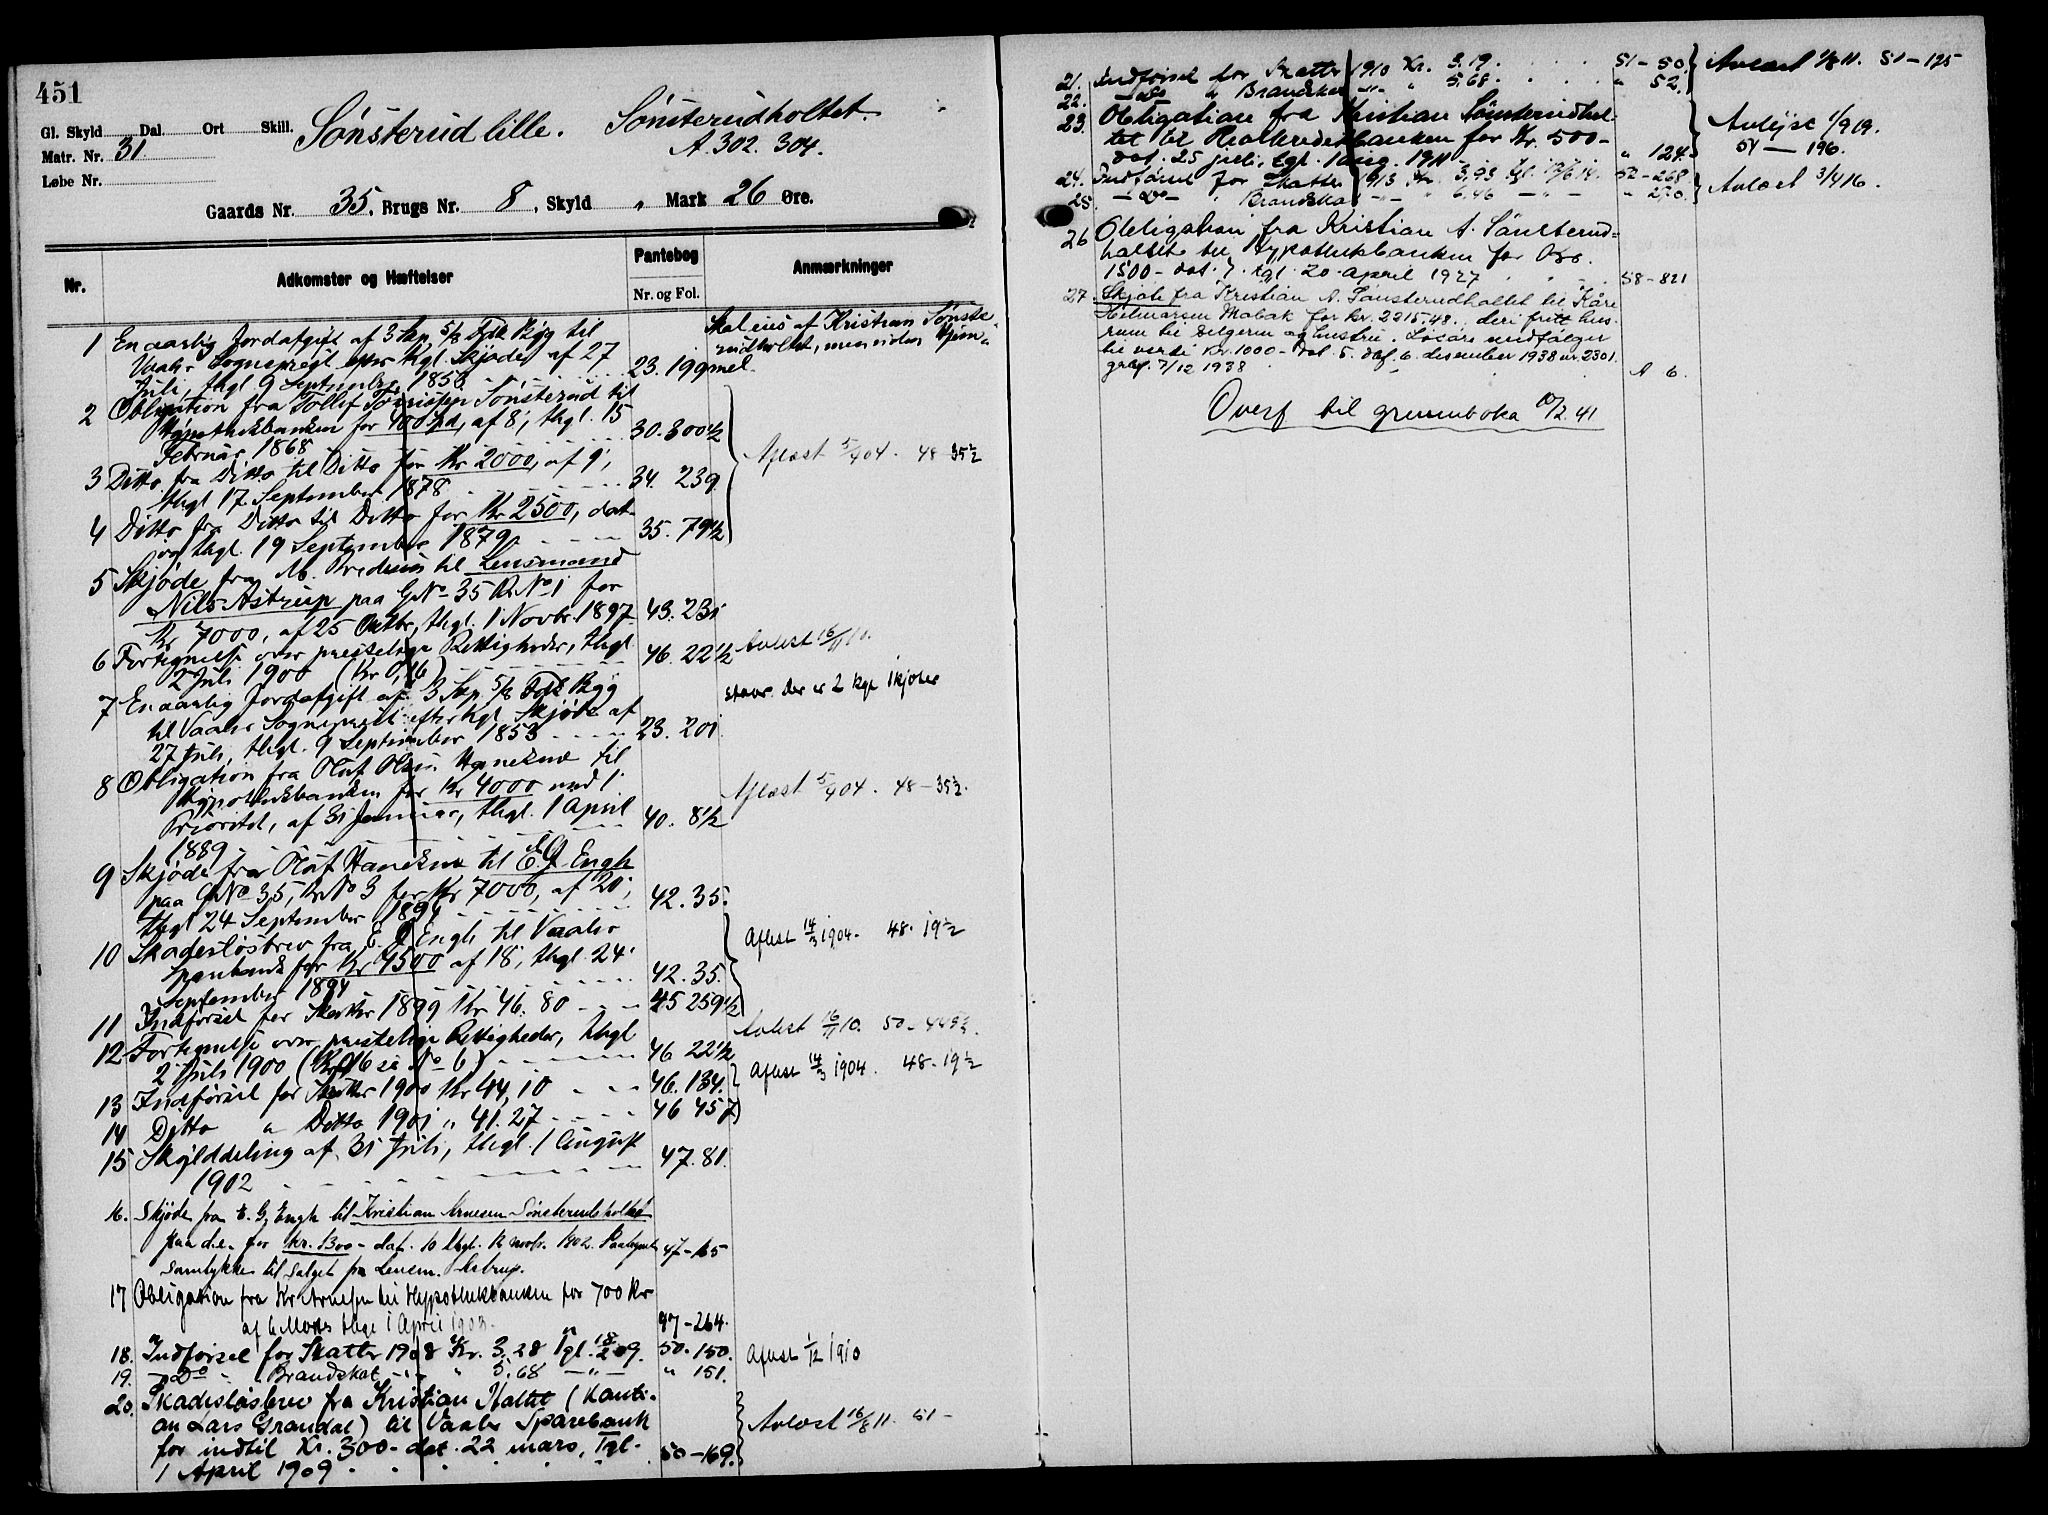 451
Gl. Skyld Dal. Ort Skill.
Matr. Nr. 31.
Løbe Nr.
Sønsterud lille. Sønsterudholtet.
A. 302. 304.
Gaards Nr. 35, Brugs Nr. 8, Skyld „ Mark 26 Øre.
Nr. Adkomster og Hæftelser Pantebog Anmærkninger
Nr. og Fol.
1 En aarlig Jordafgift af 3 Skp, 5/8 Fdk Byg til
Vaaler Sognepregt efter kgl. Skjøde af 27
Juli, thgl. 9 September 1853 23. 199
Skal eies af Kristian Sønste-
rudholtet, men uden Hjem-
mel.
2 Obligation fra Tollef Sønsterud til
Hypothekbanken for 400 Spd, af 8, thgl. 15
Februar 1868 30. 300 1/2
3 Ditto fra Ditto til Ditto for Kr 2000, af 9,
thgl 17 September 1878 34. 239
4 Ditto fra Ditto til Ditto for Kr 2500, dat
og thgl. 19 September 1879 35. 79 1/2
Aflæst 5/4 04. 48-35 1/2
5 Skjøde fra M. Bredesen til Lensmand
Nils Astrup paa GNo 35 BrNo 1 for
Kr 7000, af 25 Oktbr, thgl. 1 Novbr. 1897 43. 231
6 Fortegnelse over præstelige Rettigheder, thgl.
2 Juli 1900 (Kr 0,16) 46. 22 1/2
Avlest 16/11 10.
7 En aarlig Jordafgift af 3 Skp 5/8 Fdk Byg
til Vaaler Sognepræst efter kgl. Skjøde af
27 Juli, thgl. 9 September 1853 23. 201
Der er 2 kgl Skjøder
8 Obligation fra Oluf Olsen Haneknæ til
Hypothekbanken for Kr 4000 med 1
Prioritet, af 31 Januar, thgl. 1 April
1889 40. 8 1/2
Aflæst 5/4 04. 48-35 1/2.
9 Skjøde fra Oluf Haneknæ til E. G. Engh
paa GNo 35, BrNo 3 for Kr 7000, af 20,
thgl 24 September 1894 42. 35.
10 Skadesløsbrev fra E. G. Engh til Vaaler
Sparebank for Kr 4500 af 18, thgl. 24
September 1894 42. 35.
11 Indførsel for Skatter 1899 Kr 46.80 45 259 1/2
Aflest 14/3 1904. 48. 19 1/2
12 Fortegnelse over præstelige Rettigheder, thgl
2 Juli 1900 (Kr 0,16 se No 6) 46 22 1/2
Avlest 16/11 10. 50-449 1/2.
13 Indførsel for Skatter 1900 Kr 44,10 46. 134.
14 Ditto „ Ditto 1901 „ 41.27 46 457
Aflest 14/3 1904. 48-19 1/2
15 Skylddeling af 31 Juli, thgl. 1 August
1902 47. 81.
16. Skjøde fra E. G. Engh til Kristian Arnesen Sønsterudholtet
paa d.e. for Kr. 1300 - dat. 10 thgl. 12 novb. 1902. Paategnet
samtykke til salget fra Lensm. Astrup. 47-165
17 Obligation fra Kr Arnesen til Hypothekbanken for 700 Kr
af 6 Marts thgl 1 April 1903. 47-264.
18. Indførsel for Skatter 1908 Kr. 3.28 Tgl. 18/2 09. 50-150.
19. -Do- „ Brandskat -„- „ 5.68 -„- „ 151.
Aflest 1/12 1910
20. Skadesløsbrev fra Kristian Holtet (kauti-
on Lars Grandal) til Vaaler Sparebank
for indtil Kr. 300 - dat. 22 mars, Tgl.
1 April 1909 50-169.
Avlæst 16/8 11. 51-
21. Indførsel for Skatter 1910 Kr. 3.19. 51-50.
22. -Do- „ Brandskat -„- „ 5.68 „ 52.
Avlæst 1/8 11. 51-125
23. Obligation fra Kristian Sønsterudhol-
tet til Hypothekbanken for Kr. 500-
dat. 25 juli, tgl. 1 aug. 1911 „ 124
Avlyst 1/9 19.
54 - 196.
24. Indførsel for Skatter 1913 Kr. 3,93 tgl. 17/6 14. 52-268
25. -Do- „ Brandskat -„- „ 6.46 -„- „ 270.
Avlæst 3/4 16.
26 Obligation fra Kristian A. Sønsterud-
holtet til Hypothekbanken for Kr.
1500- dat. 7. tgl. 20. april 1927 58-821
27. Skjøte fra Kristian A. Sønsterudholtet til Kåre
Helmarsen Mobak for kr. 2215.48., deri fritt hus-
rum til selgeren og hustru. Løsøre medfølger
til verdi kr. 1000- Dat. 5. dbf. 6. desember 1938 nr. 2301.
grbf. 7/12 1938 A 6.
Overf til grunnboka 10/2 41